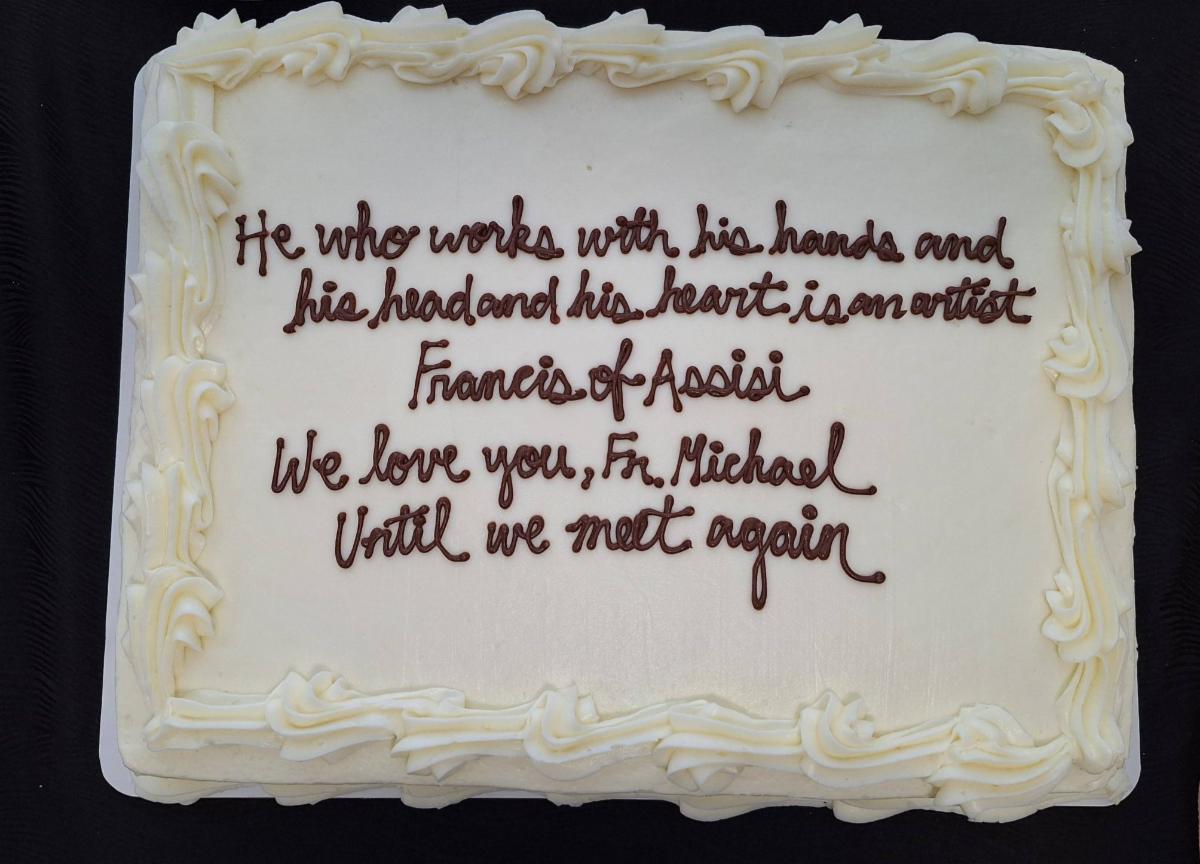 He who works with his hands and
his head and his heart is an artist
Francis of Assisi
We love you, Fr. Michael
Until we meet again